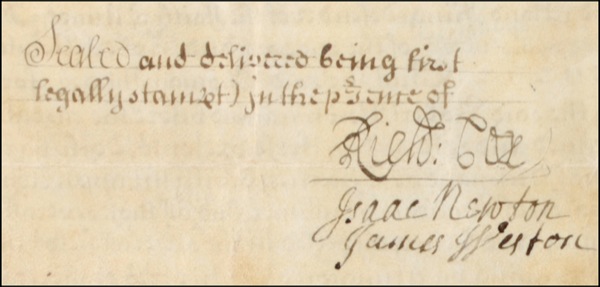 Sealed and delivered being first
legally stampt) in the psence of
Richd: Coe
Isaac Newton
James Weston